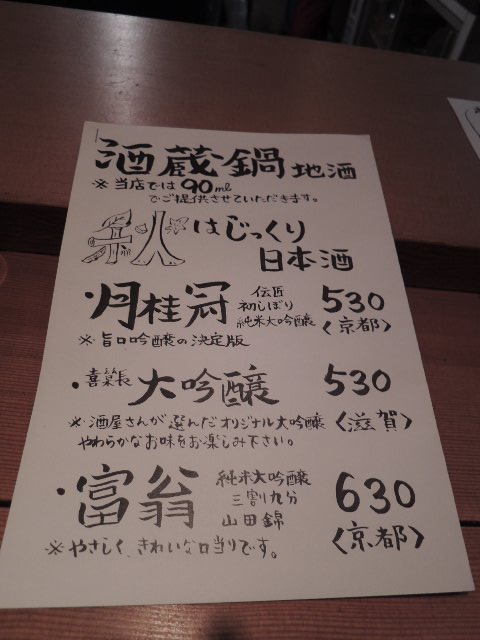 酒蔵鍋 地酒
※当店では90ml
でご提供させていただきます。
秋はじっくり
日本酒
・月桂冠 伝匠 初しぼり 純米大吟醸 530
〈京都〉
※旨口吟醸の決定版
・喜楽長 大吟醸 530
〈滋賀〉
※酒屋さんが選んだオリジナル大吟醸
やわらかなお味をお楽しみ下さい。
・富翁 純米大吟醸 三割九分 山田錦 630
〈京都〉
※やさしく、きれいな口当りです。